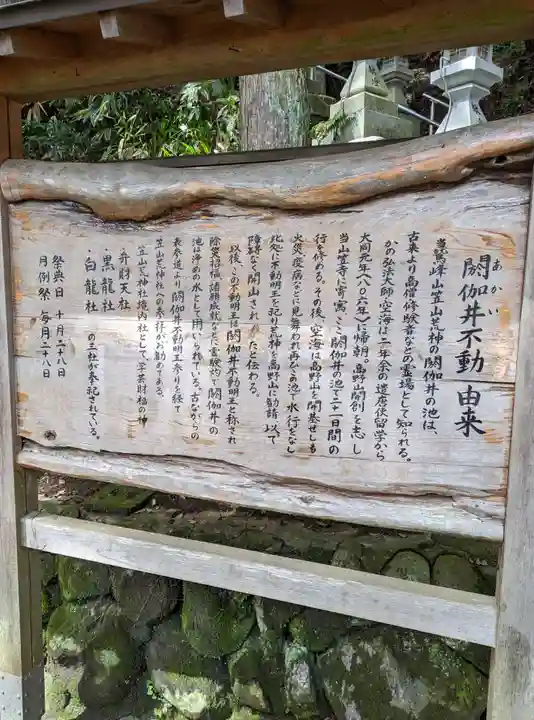 閼伽井不動 由来
あかい
当鷲峰山笠山荒神の閼伽井の池は、
古来より高僧修験者などの霊場として知られる。
かの弘法大師・空海は二年余の遣唐使留学から
大同元年（八〇六年）に帰朝。高野山開創を志し
当山笠寺に寄寓、ここ閼伽井の池で二十一日間の
行を修める。その後、空海は高野山を開基せしも
火災・疫病などに見舞われ再びこの池で水行をなし
此処に不動明王を祀り荒神を高野山に勧請、以て
障碍なく開山されたと伝わる。
以後、この不動明王は閼伽井不動明王と称され
除災招福、諸願成就などに霊験灼で閼伽井の
池は浄めの水として用いられている。古ながらの
表参道より閼伽井不動明王参りを経て
笠山荒神社への参拝がお勧めである。
笠山荒神社境内社として、学芸財福の神
・弁財天社
・黒龍社
・白龍社 の三社が奉祀されている。
祭典日 十月二十八日
月例祭 毎月二十八日